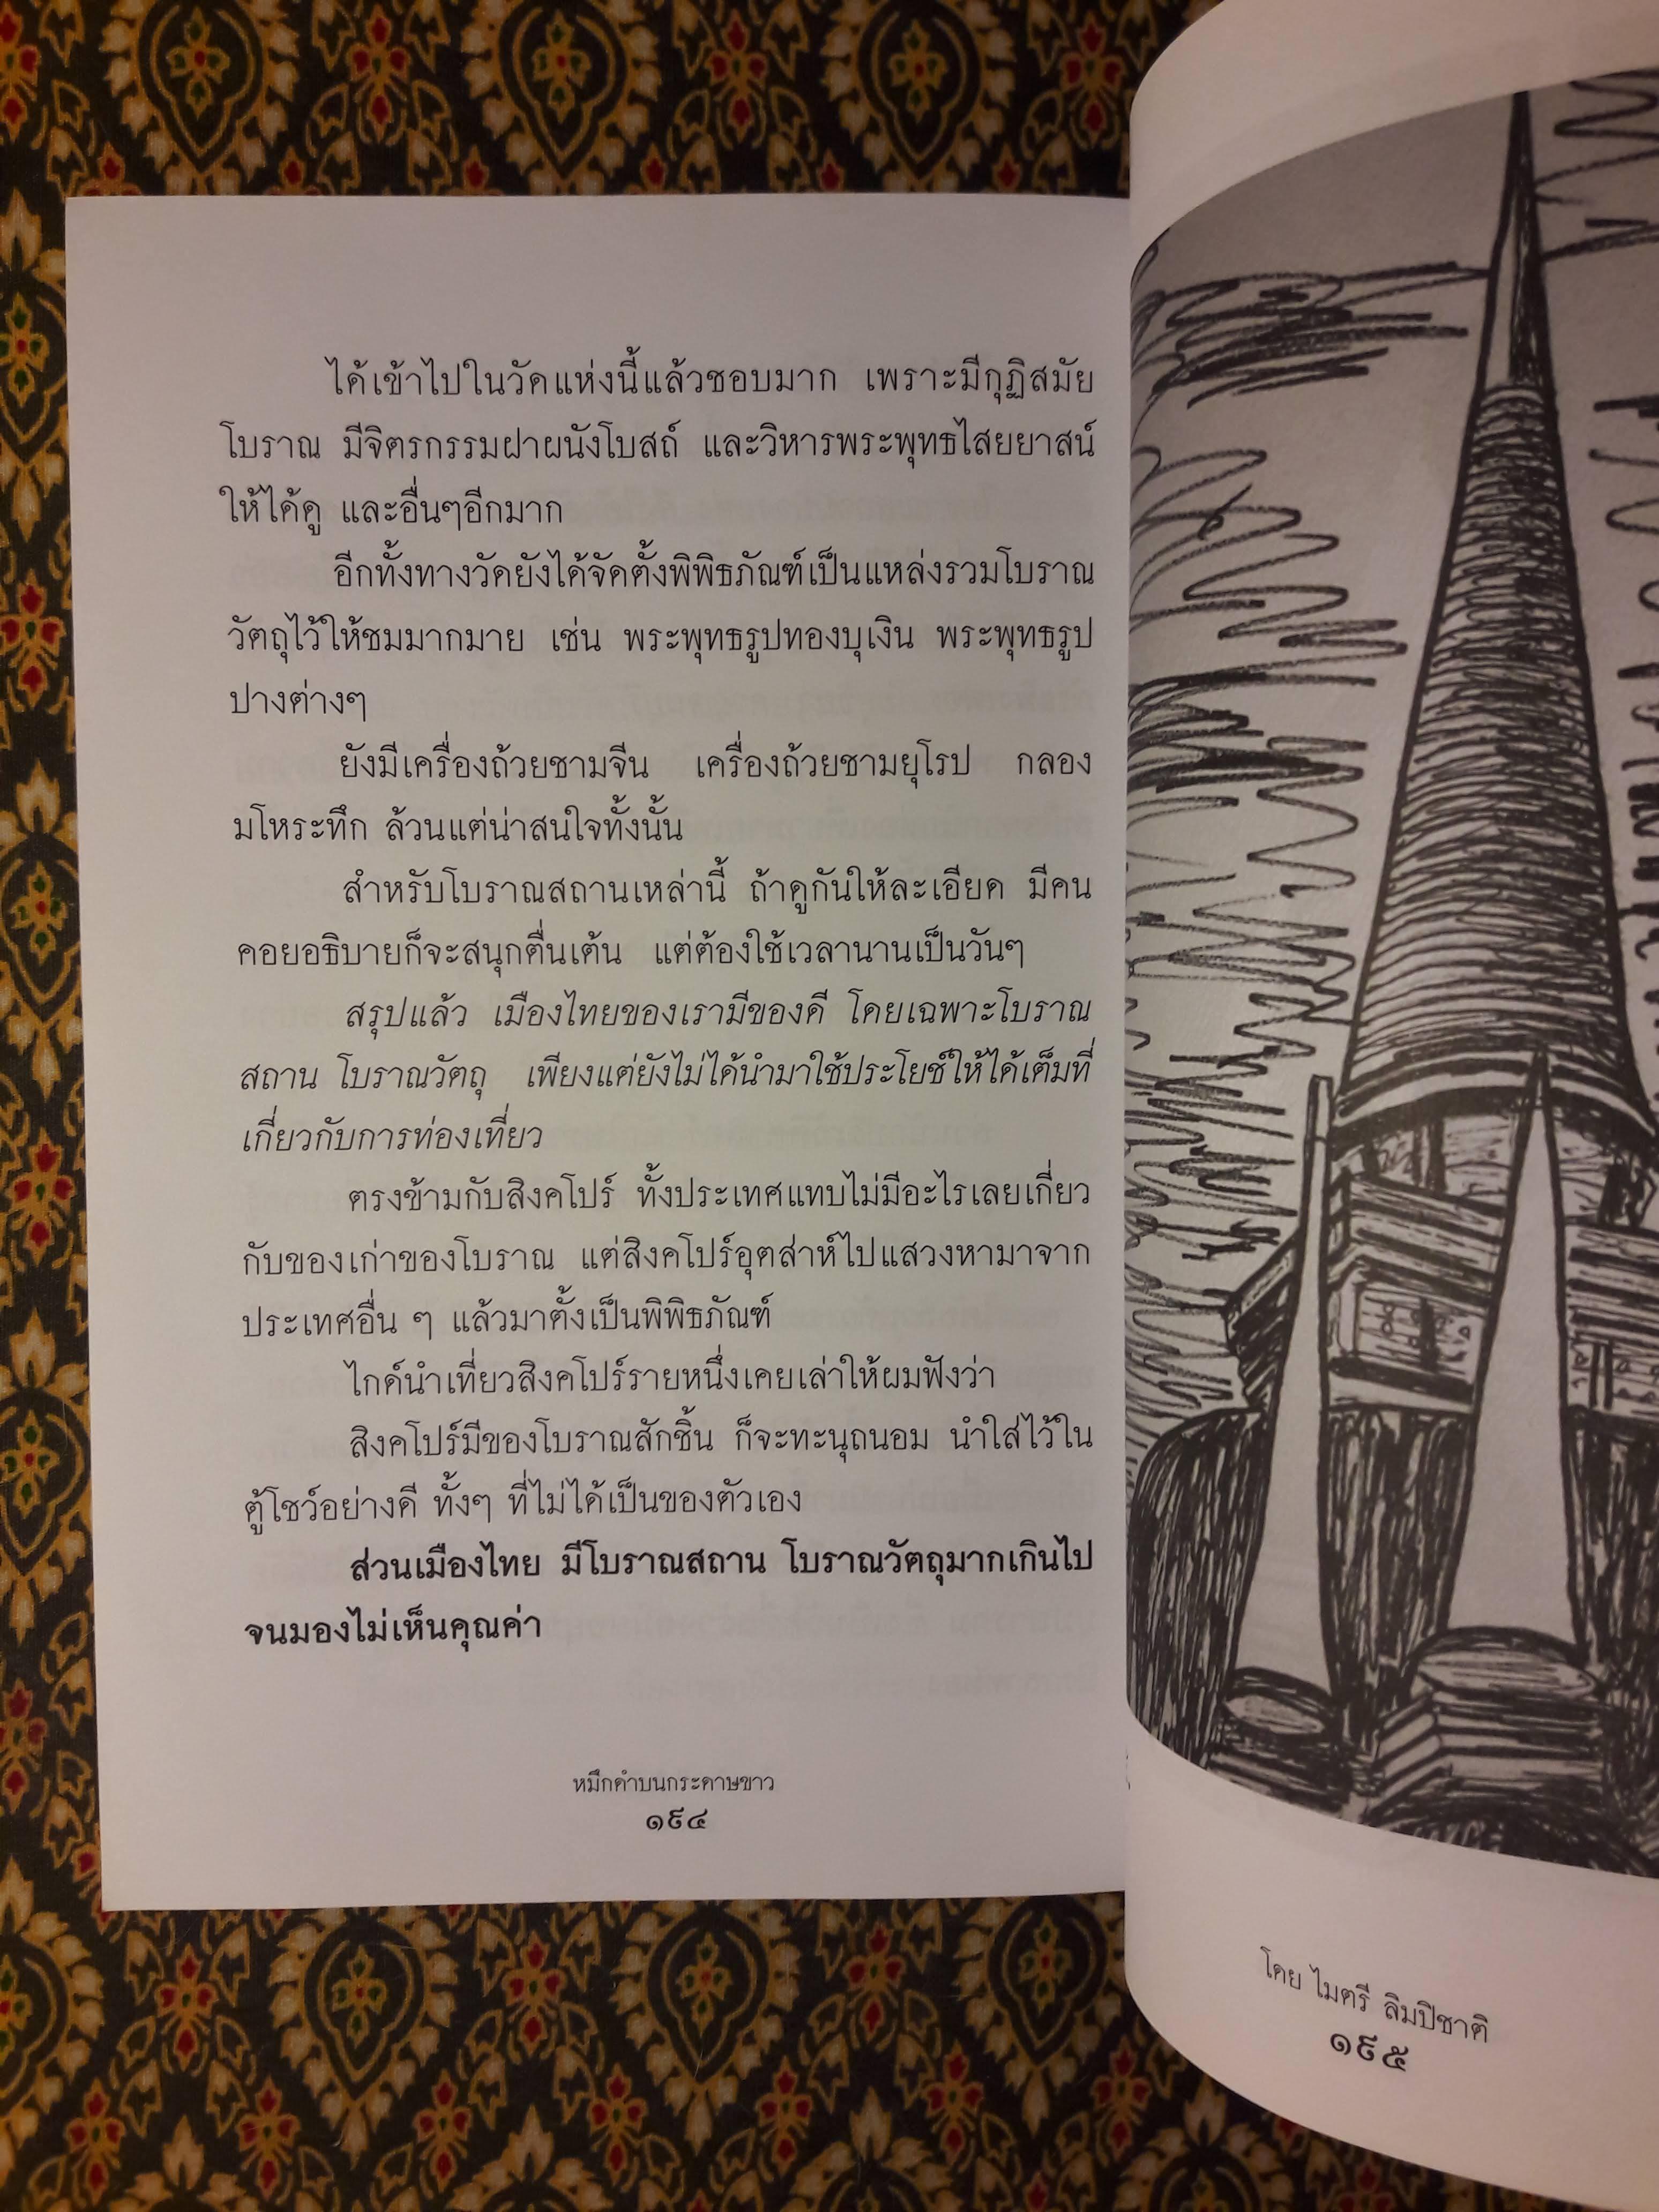 ได้เข้าไปในวัดแห่งนี้แล้วชอบมาก เพราะมีกุฏิสมัย
โบราณ มีจิตรกรรมฝาผนังโบสถ์ และวิหารพระพุทธไสยยาสน์
ให้ได้ดู และอื่นๆอีกมาก
อีกทั้งทางวัดยังได้จัดตั้งพิพิธภัณฑ์เป็นแหล่งรวมโบราณ
วัตถุไว้ให้ชมมากมาย เช่น พระพุทธรูปทองบุเงิน พระพุทธรูป
ปางต่างๆ
ยังมีเครื่องถ้วยชามจีน เครื่องถ้วยชามยุโรป กลอง
มโหระทึก ล้วนแต่น่าสนใจทั้งนั้น
สำหรับโบราณสถานเหล่านี้ ถ้าดูกันให้ละเอียด มีคน
คอยอธิบายก็จะสนุกตื่นเต้น แต่ต้องใช้เวลานานเป็นวันๆ
สรุปแล้ว เมืองไทยของเรามีของดี โดยเฉพาะโบราณ
สถาน โบราณวัตถุ เพียงแต่ยังไม่ได้นำมาใช้ประโยช์ให้ได้เต็มที่
เกี่ยวกับการท่องเที่ยว
ตรงข้ามกับสิงคโปร์ ทั้งประเทศแทบไม่มีอะไรเลยเกี่ยว
กับของเก่าของโบราณ แต่สิงคโปร์อุตส่าห์ไปแสวงหามาจาก
ประเทศอื่น ๆ แล้วมาตั้งเป็นพิพิธภัณฑ์
ไกด์นำเที่ยวสิงคโปร์รายหนึ่งเคยเล่าให้ผมฟังว่า
สิงคโปร์มีของโบราณสักชิ้น ก็จะทะนุถนอม นำใส่ไว้ใน
ตู้โชว์อย่างดี ทั้งๆ ที่ไม่ได้เป็นของตัวเอง
ส่วนเมืองไทย มีโบราณสถาน โบราณวัตถุมากเกินไป
จนมองไม่เห็นคุณค่า
หมึกดำบนกระดาษขาว
๑๙๔
โดย ไมตรี ลิมปิชาติ
๑๙๕